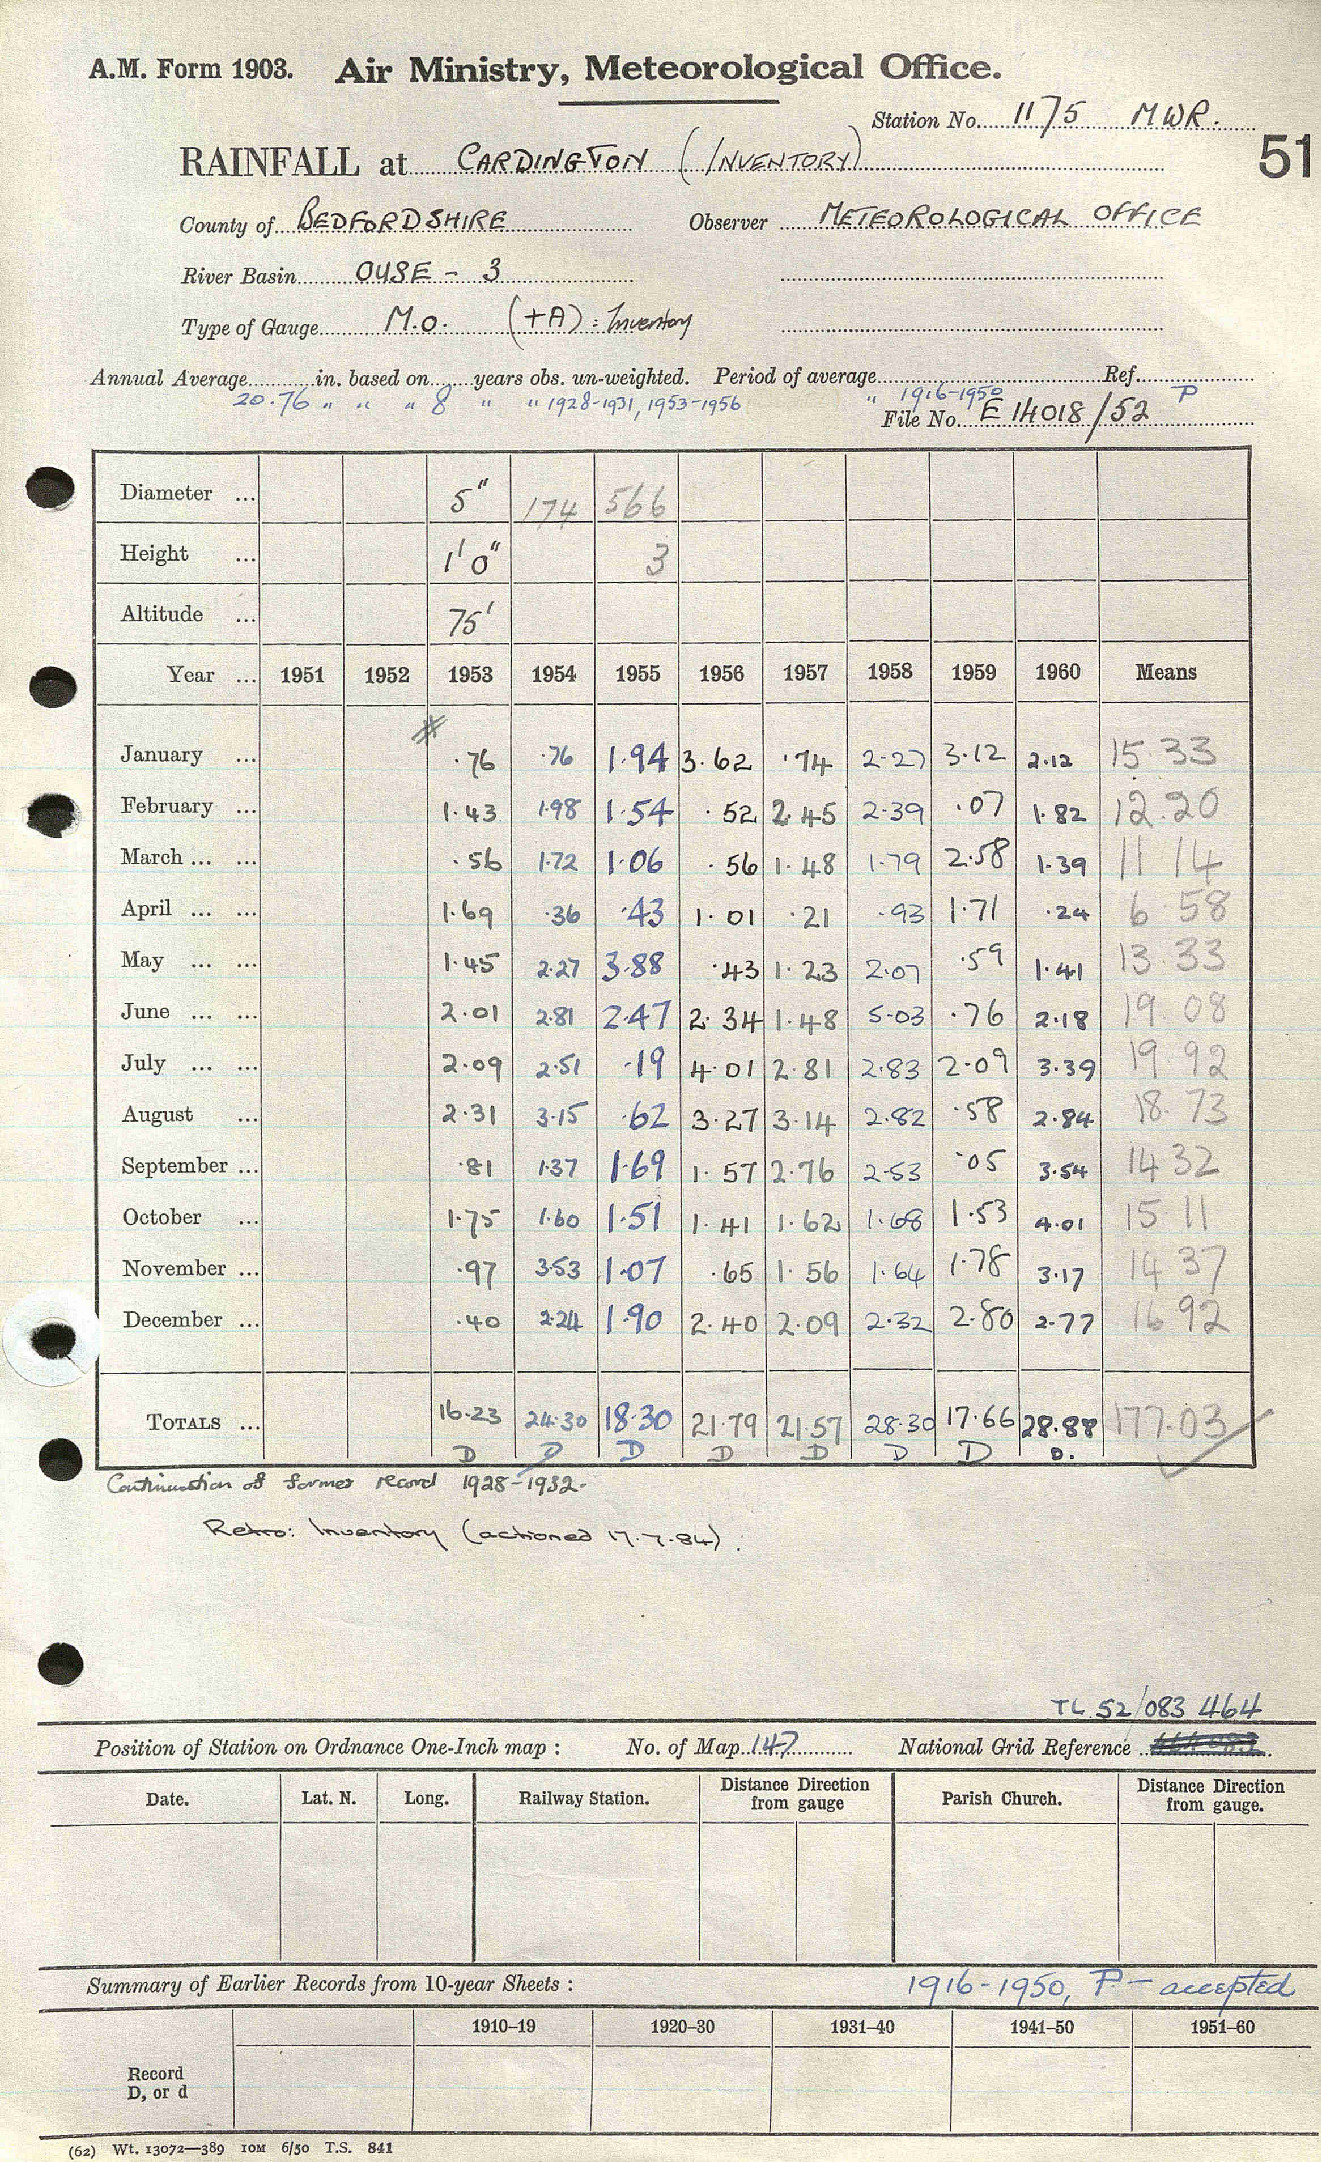 A.M. Form 1903. Air Ministry, Meteorological Office.
Station No. 1175 MWR.
51
RAINFALL at CARDINGTON (INVENTORY)
County of BEDFORDSHIRE Observer METEOROLOGICAL OFFICE
River Basin OUSE - 3
Type of Gauge M.O. (+A) : Inventory
Annual Average in. based on years obs. un-weighted. Period of average Ref.
20.76 " " " 8 " " 1928-1931, 1953-1956 " 1916-1950 P
File No. E 14018/52
Diameter ... 5" 174 566
Height ... 1' 0" 3
Altitude ... 75'
Year ... 1951 1952 1953 1954 1955 1956 1957 1958 1959 1960 Means
January ... .76 .76 1.94 3.62 .74 2.27 3.12 2.12 15.33
February ... 1.43 1.98 1.54 .52 2.45 2.39 .07 1.82 12.20
March ... ... .56 1.72 1.06 .56 1.48 1.79 2.58 1.39 11 14
April ... ... 1.69 .36 .43 1.01 .21 .93 1.71 .24 6.58
May ... ... 1.45 2.27 3.88 .43 1.23 2.07 .59 1.41 13.33
June ... ... 2.01 2.81 2.47 2.34 1.48 5.03 .76 2.18 19.08
July ... ... 2.09 2.51 .19 4.01 2.81 2.83 2.09 3.39 19.92
August ... 2.31 3.15 .62 3.27 3.14 2.82 .58 2.84 18.73
September ... .81 1.37 1.69 1.57 2.76 2.53 .05 3.54 14 32
October ... 1.75 1.60 1.51 1.41 1.62 1.68 1.53 4.01 15 11
November ... .97 3.53 1.07 .65 1.56 1.64 1.78 3.17 14 37
December ... .40 2.24 1.90 2.40 2.09 2.32 2.80 2.77 16 92
TOTALS ... 16.23 24.30 18.30 21.79 21.57 28.30 17.66 28.88 177.03
D D D D D D D D.
Continuation of former record 1928-1932.
Retro: Inventory (actioned 17.7.84).
TL 52/083 464
Position of Station on Ordnance One-Inch map : No. of Map 147 National Grid Reference
Date. Lat. N. Long. Railway Station. Distance Direction from gauge Parish Church. Distance Direction from gauge.
Summary of Earlier Records from 10-year Sheets : 1916-1950, P - accepted
1910–19 1920–30 1931–40 1941–50 1951–60
Record
D, or d
(62) Wt. 13072—389 10M 6/50 T.S. 841